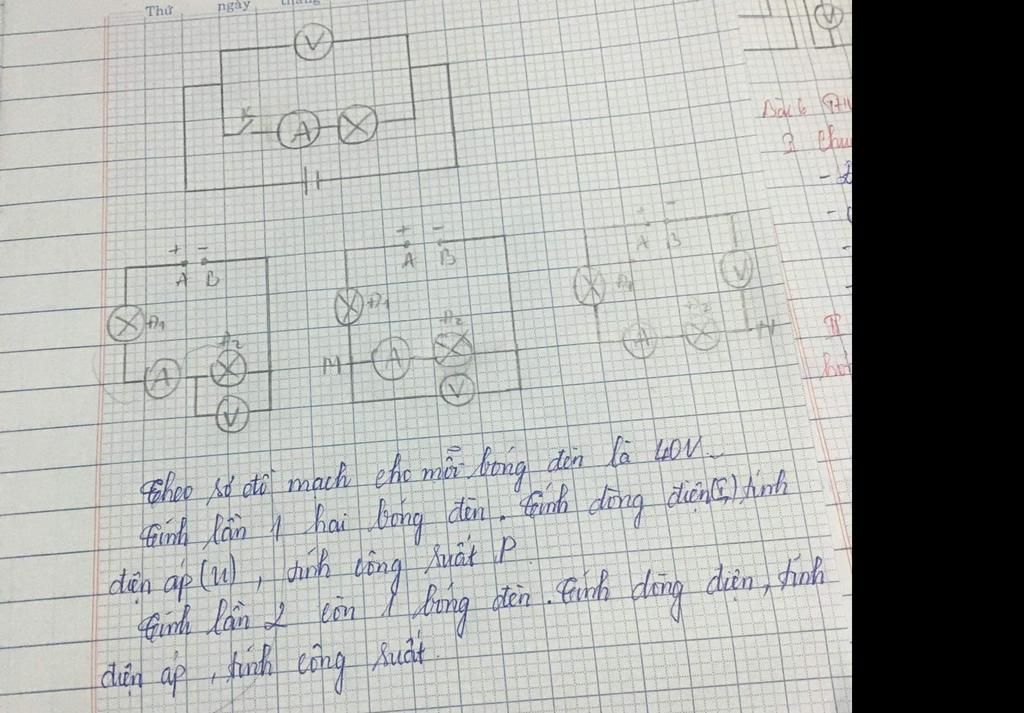 Thứ ngày tháng
V
V
K
A
Bài 6
I chu
+ - + - + -
A B A B A B
Đ1 Đ1 Đ1 V
Đ2 Đ2 Đ2
A M A A M
V V
II
Theo sơ đồ mạch cho mỗi bóng đèn là 40V.
Tính lần 1 hai bóng đèn. Tính dòng điện(I) tính
điện áp(U), tính công suất P.
Tính lần 2 còn 1 bóng đèn. Tính dòng điện, tính
điện áp, tính công suất.